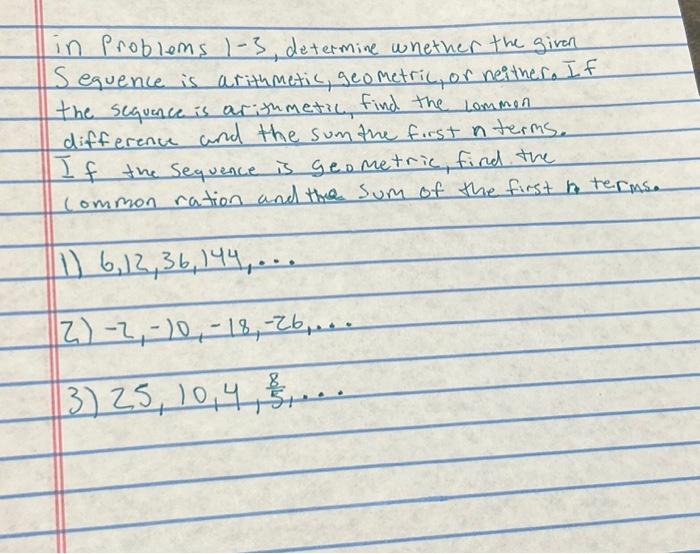 in Problems 1-3, determine whether the given
Sequence is arithmetic, geometric, or neither. If
the sequence is arithmetic, find the common
difference and the sum the first n terms.
If the sequence is geometric, find the
common ration and the sum of the first n terms.
1) 6,12,36,144,...
2) -2,-10,-18,-26,...
3) 25,10,4,8/5,...